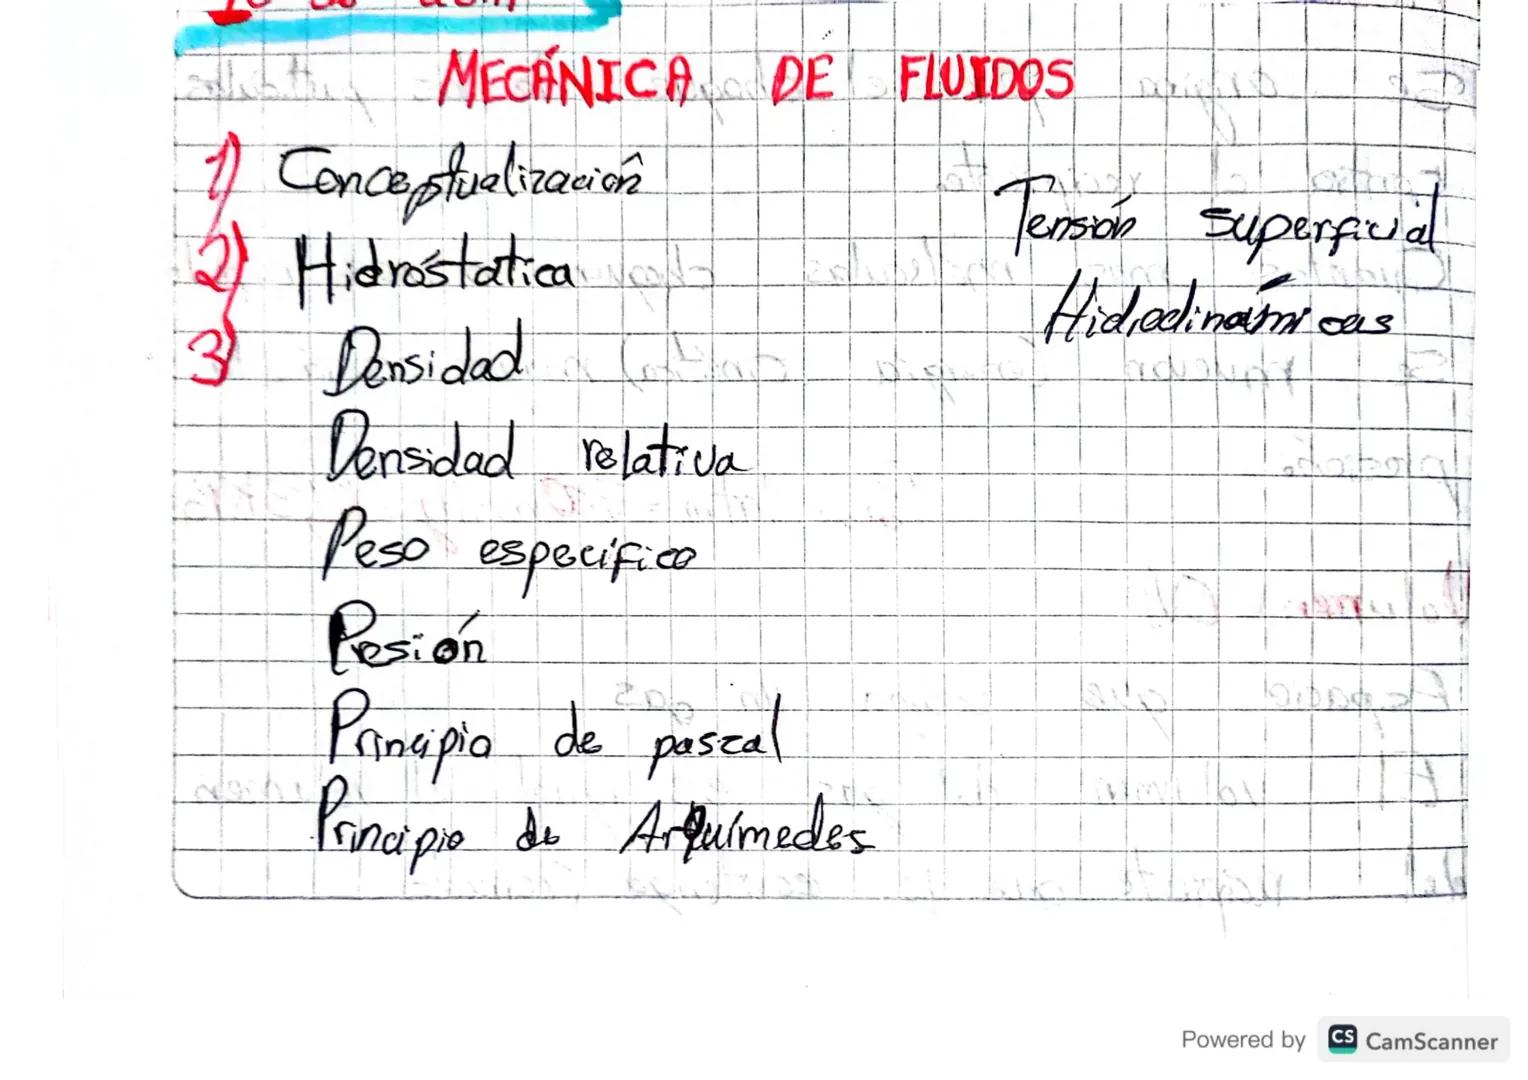 MECÁNICA DE FLUIDOS
1) Conceptualización
2) Hidróstatica
3) Densidad
Densidad relativa
Peso especifico
Presión
Principio de pascal
Principio de Arquímedes
Tensión superficial
Hidrodinámicas
Powered by CS CamScanner